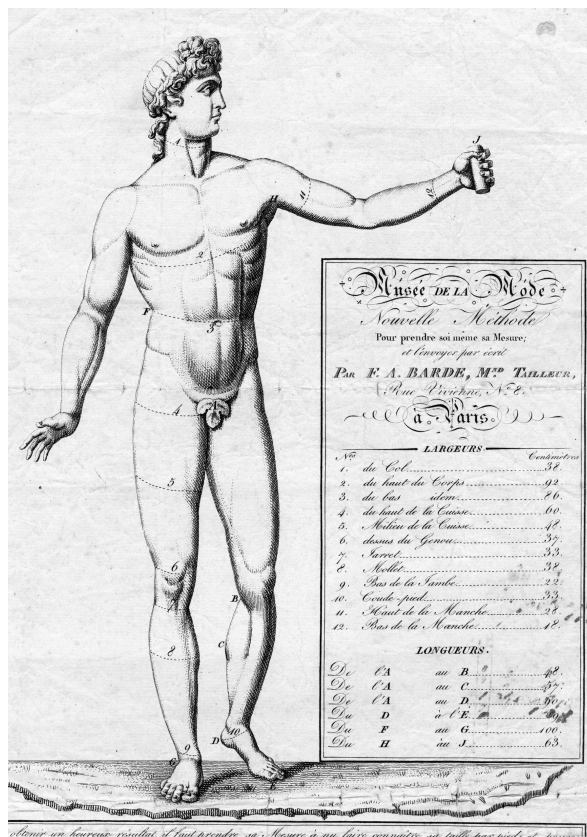 Musée DE LA Mode
Nouvelle Méthode
Pour prendre soi même sa Mesure;
et l'envoyer par écrit
PAR F. A. BARDE, M.ND TAILLEUR,
Rue Vivienne, N.º 8.
à Paris.
LARGEURS.
N.os Centimètres
1. du Col 38.
2. du haut du Corps 92
3. du bas idem 86.
4. du haut de la Cuisse 60.
5. Milieu de la Cuisse 48.
6. dessus du Genou 37.
7. Jarret 33.
8. Mollet 38.
9. Bas de la Jambe 22.
10. Coude-pied 33.
11. Haut de la Manche 28.
12. Bas de la Manche 18.
LONGUEURS.
De l'A au B 48.
De l'A au C 57.
De l'A au D
Du D à l'E
Du F au G 100.
Du H au J 63.
J
A
11
12
H
2
F
3
4
5
6
B
7
C
8
10
D
9
G
obtenir un heureux résultat, il faut prendre sa Mesure à nu faire connaître sa taille par pieds et